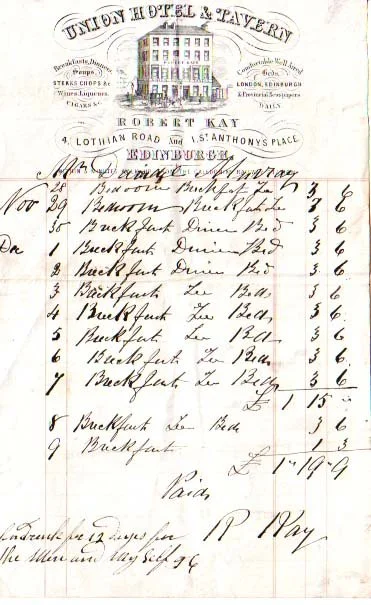 UNION HOTEL & TAVERN
Breakfasts, Dinners
Soups,
STEAKS CHOPS &c
Wines, Liqueurs,
CIGARS &c
Comfortable Well Aired
Beds,
LONDON, EDINBURGH
& Provincial Newspapers
DAILY
ROBERT KAY
4, LOTHIAN ROAD And 1, ST. ANTHONYS PLACE
EDINBURGH,
28 Bedroom Breckfast Tea 3 6
Nov 29 Bedroom Breckfast Tea 3 6
30 Breckfast Diner Bed 3 6
De 1 Breckfast Diner Bed 3 6
2 Breckfast Diner Bed 3 6
3 Breckfast Tea Beds 3 6
4 Breckfast Tea Beds 3 6
5 Breckfast Tea Beds 3 6
6 Breckfast Tea Beds 3 6
7 Breckfast Tea Beds 3 6
£ 1 15
8 Breckfast Tea Beds 3 6
9 Breckfast 1 3
£ 1 " 19 " 9
Paid
R Kay
for 12 days for
the Men and My Self 9 6